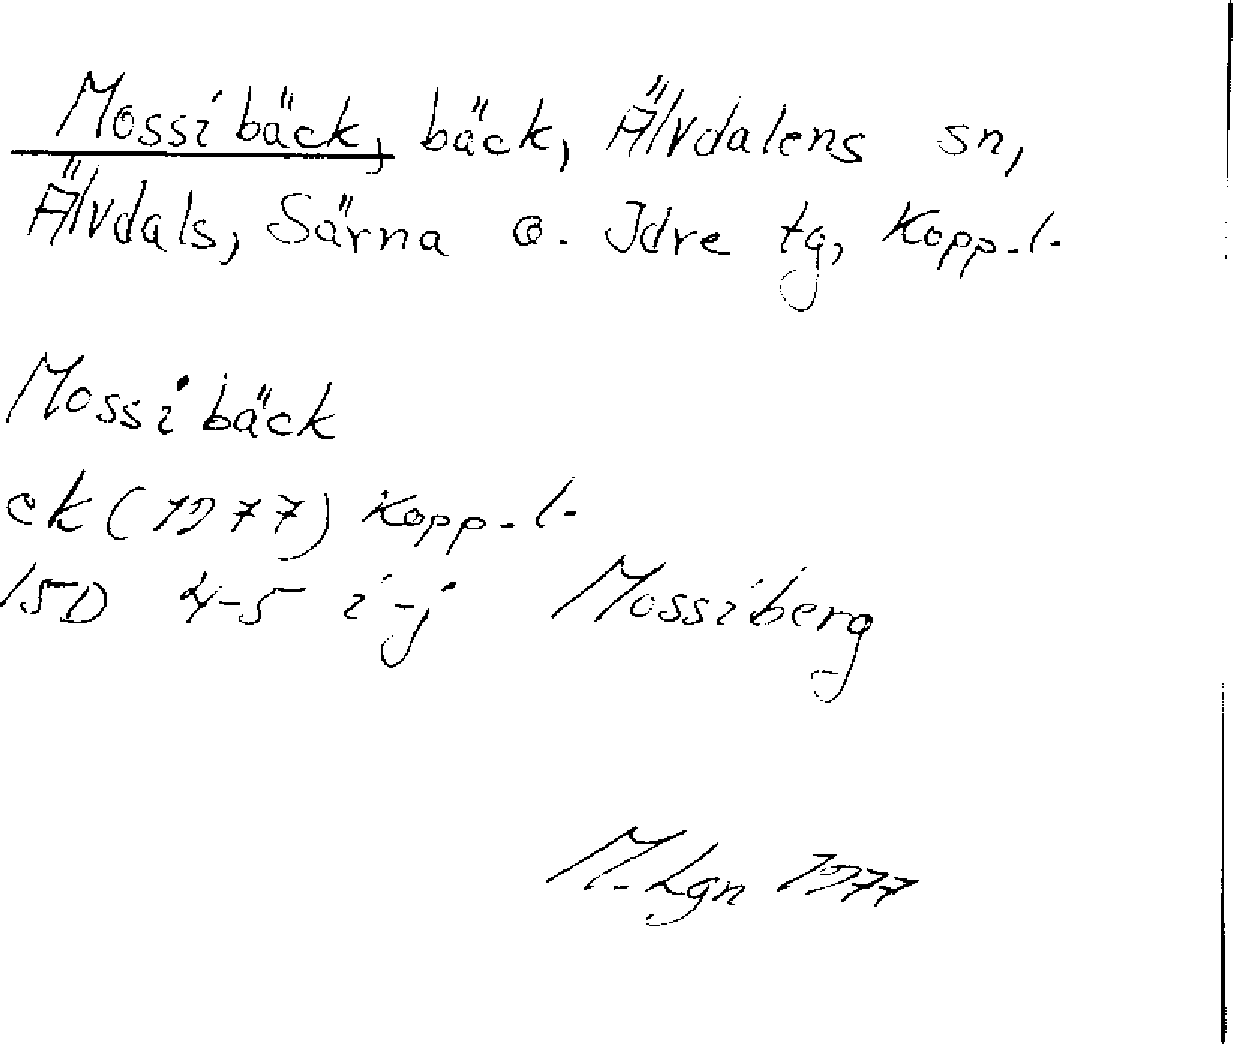 Mossibäck, bäck, Älvdalens sn,
Älvdals, Särna o. Idre tg, Kopp.l.
Mossibäck
ek (1977) Kopp.l.
15D 4-5 i-j Mossiberg
M.Lgn 1977